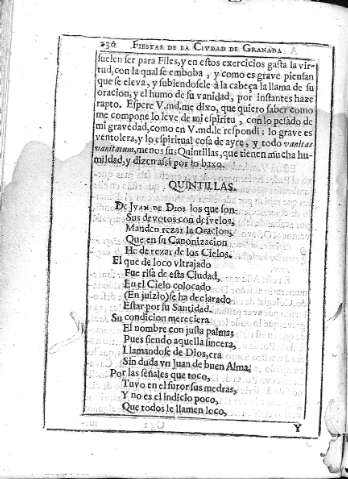 236 FIESTAS DE LA CIVDAD DE GRANADA.
suelen ser para Files, y en estos exercicios gasta la vir-
tud, con la qual se emboba, y como es grave piensan
que se eleva, y subiendosele à la cabeça la llama de su
oracion, y el humo de su vanidad, por instantes haze
rapto. Espere V.md. me dixo, que quiero saber como
me compone lo leve de mi espiritu, con lo pesado de
mi gravedad, como en V.md. le respondi: lo grave es
ventolera, y lo espiritual cosa de ayre, y todo vanitas
vanitatum, menos sus Quintillas, que tienen mucha hu-
mildad, y dizen assi por lo baxo.
QUINTILLAS.
De JVAN DE DIOS los que son
Sus devotos con desvelos,
Manden rezar la Oracion,
Que en su Canonizacion
He de rezar de los Cielos.
El que de loco vltrajado
Fue risa de esta Ciudad,
En el Cielo colocado
(En juizio) se ha declarado
Estar por su Santidad.
Su condicion mereciera
El nombre con justa palma;
Pues siendo aquella sincera,
Llamandose de Dios, era
Sin duda vn Juan de buen Alma.
Por las señales que toco,
Tuvo en el furor sus medras,
Y no es el indicio poco,
Que todos le llamen loco,
Y